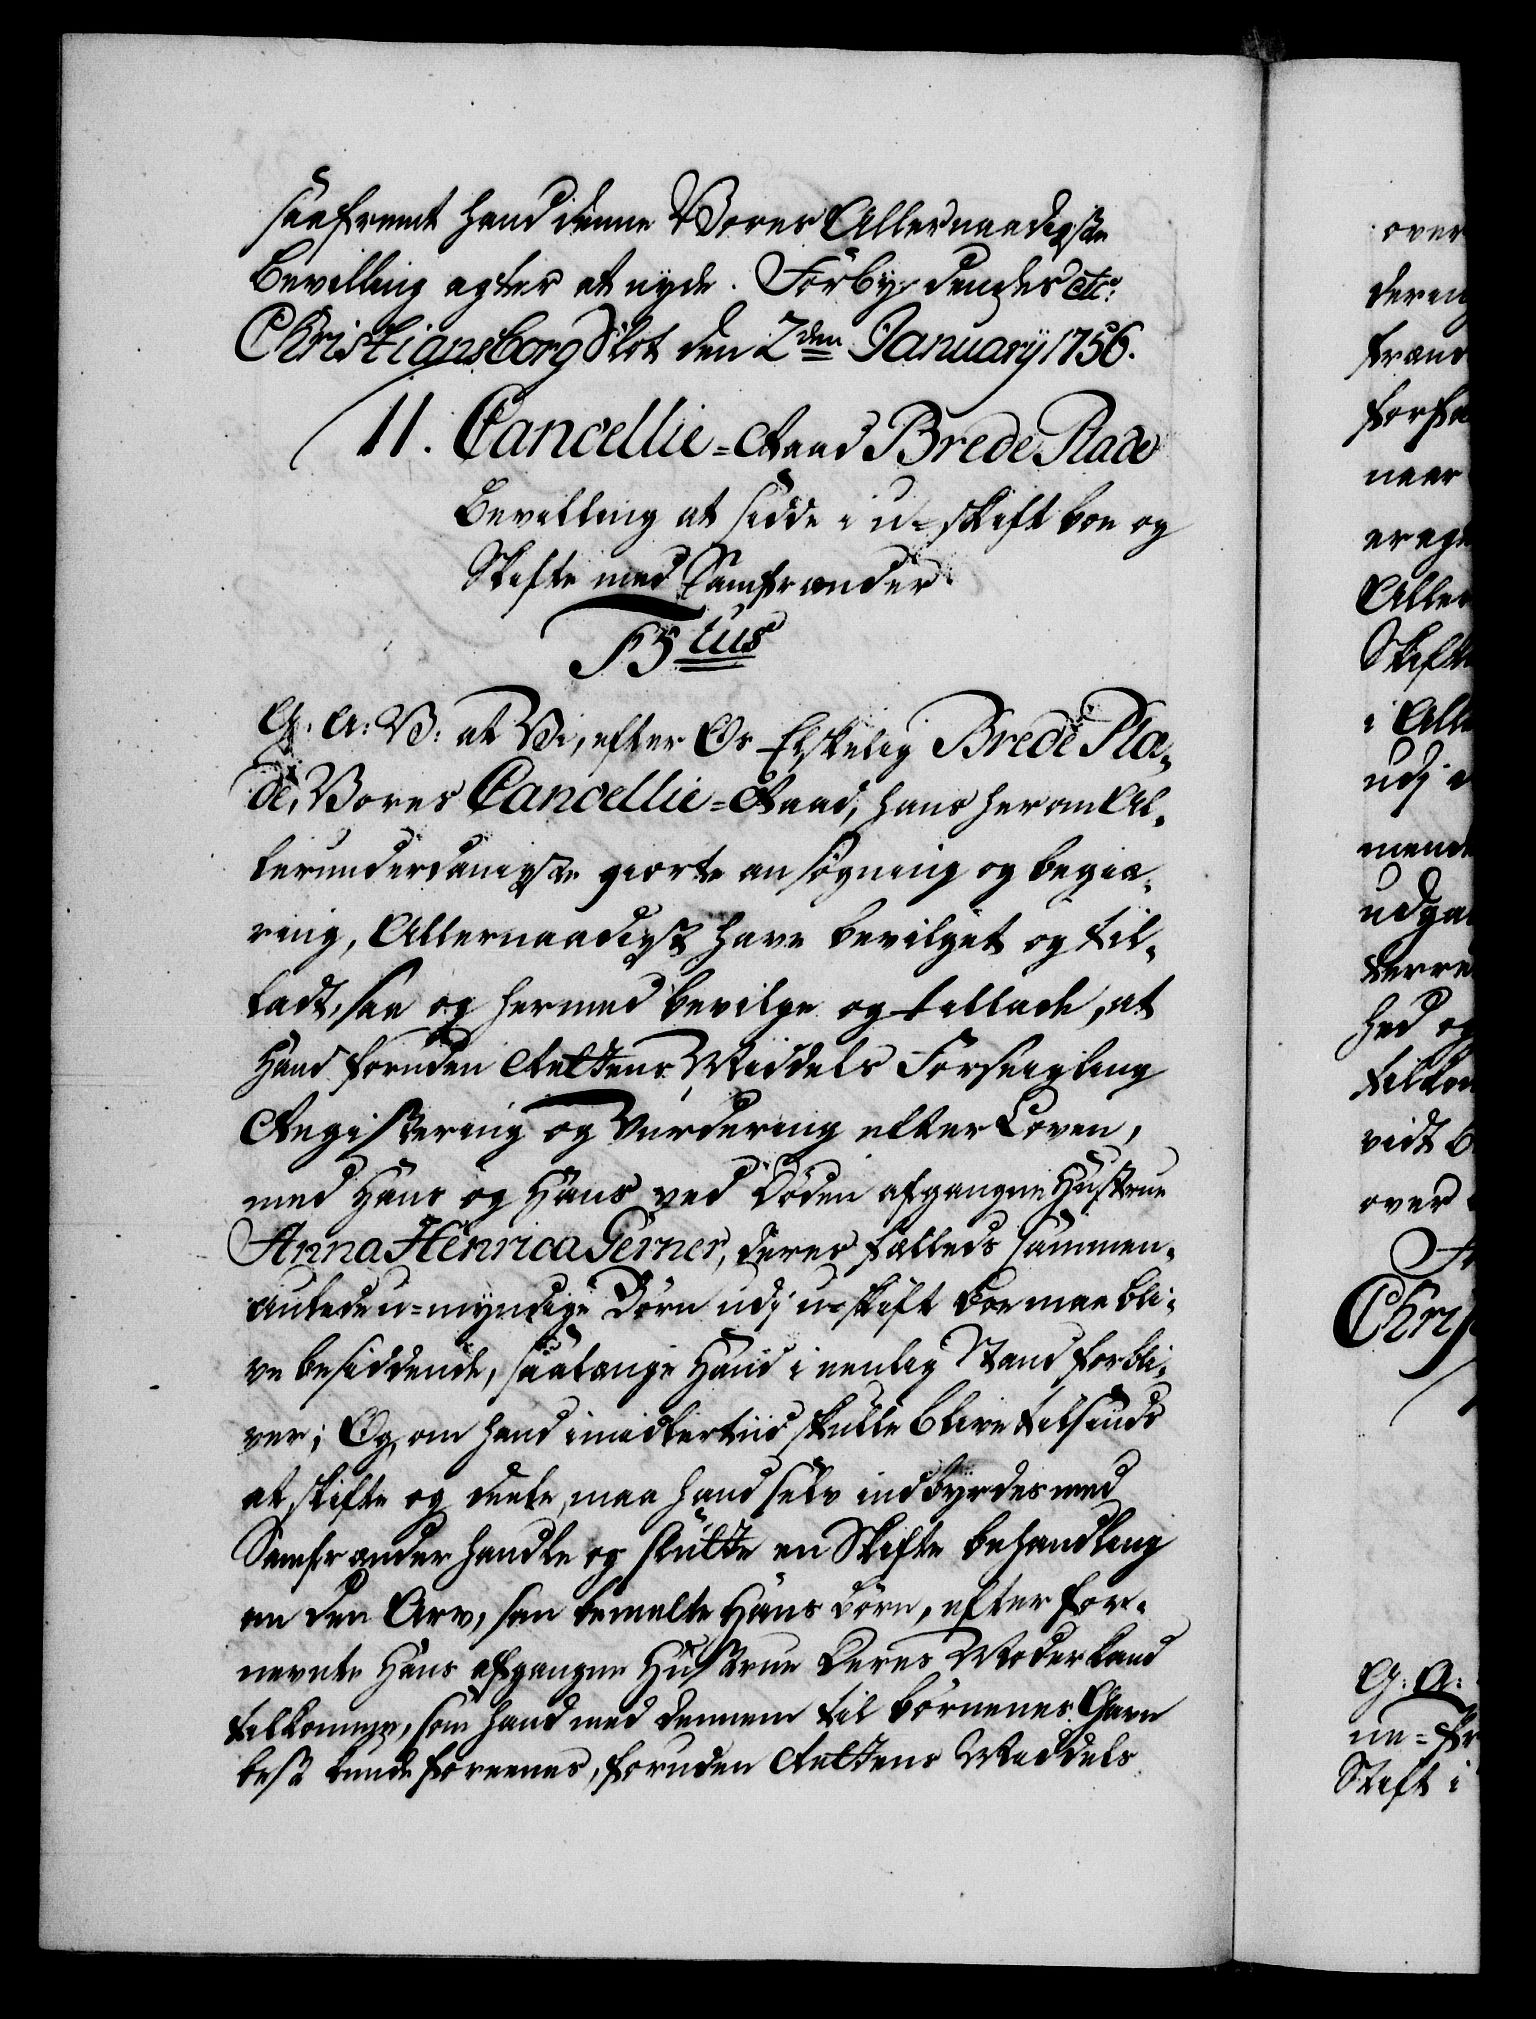 saafremt hand denne Vores Allernaadigste
Bevilling agter at nyde. Forbydendes etc:
Christiansborg Slot den 2den January 1756.
11. Cancellie=Raad Brede Plade
Bevilling at sidde i u-skift boe og
Skifte med Samfrænder.
F5tus
G: A: V: at Vi, efter Os Elskelig Brede Pla-
de, Vores Cancellie=Raad, hans herom Al-
lerunderdanigste giorte ansøgning og begiæ-
ring, Allernaadigst have bevilget og til-
ladt, saa og hermed bevilge og tillade, at
Hand foruden Rettens Middels Forseigling
Registering og Vurdering efter Loven,
med Hans og Hans ved Døden afgangne Hustrue
Anna Henrica Gerner, deres fælleds sammen-
aulede u=myndige Børn udj u-skift Boe maa bli-
ve besiddende, saalænge Hand i eenlig Stand forbli-
ver; Og, om hand imidlertiid skulle blive tilsinds
at skifte og deele, maa hand selv indbyrdes med
Samfrænder handle og slutte en Skifte behandling
om den Arv, som bemelte Hans børn, efter for-
nevnte Hans afgangne Hustrue Deres Moder kand
tilkomme, som hand med dennem til børnenes Gavn
best kunde foreenes, foruden Rettens Middels
over
dereng
frænd
forse
naar
er agt
Aller
Skifte
i Alle
udj
mend
udga
derre
hed og
tilkom
vidt
over
Chris
G: A:
ne=fr
Skift i